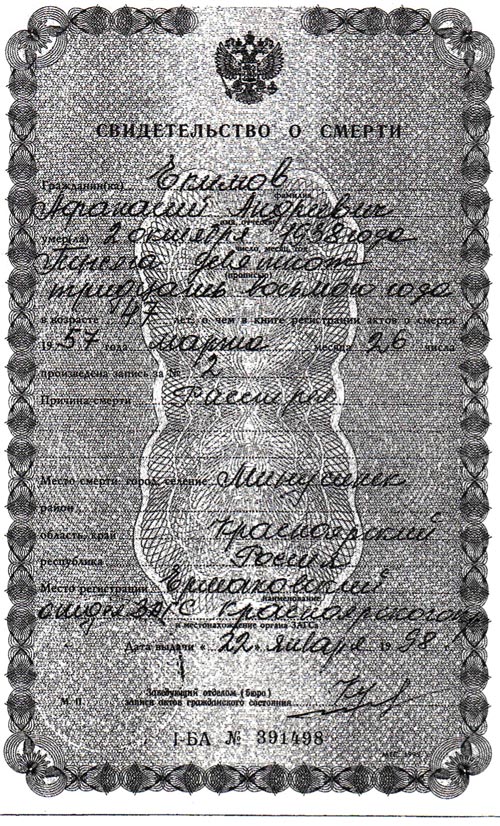 СВИДЕТЕЛЬСТВО О СМЕРТИ
Гражданин(ка) Екимов
фамилия
Афанасий Андреевич
имя, отчество
умер(ла) 2 октября 1938 года
число, месяц, год
Тысяча девятьсот
(прописью)
тридцать восьмого года
в возрасте 47 лет, о чем в книге регистрации актов о смерти
19 57 года марта месяца 26 числа
произведена запись за № 2
Причина смерти Расстрел
Место смерти: город, селение Минусинск
район
область, край Красноярский
республика Россия
Место регистрации Ермаковский
наименование
отдел ЗАГС Красноярского
и местонахождение органа ЗАГСа
Дата выдачи « 22 » января 19 98 г.
Заведующий отделом (бюро)
М. П. записи актов гражданского состояния
I-БА № 391498